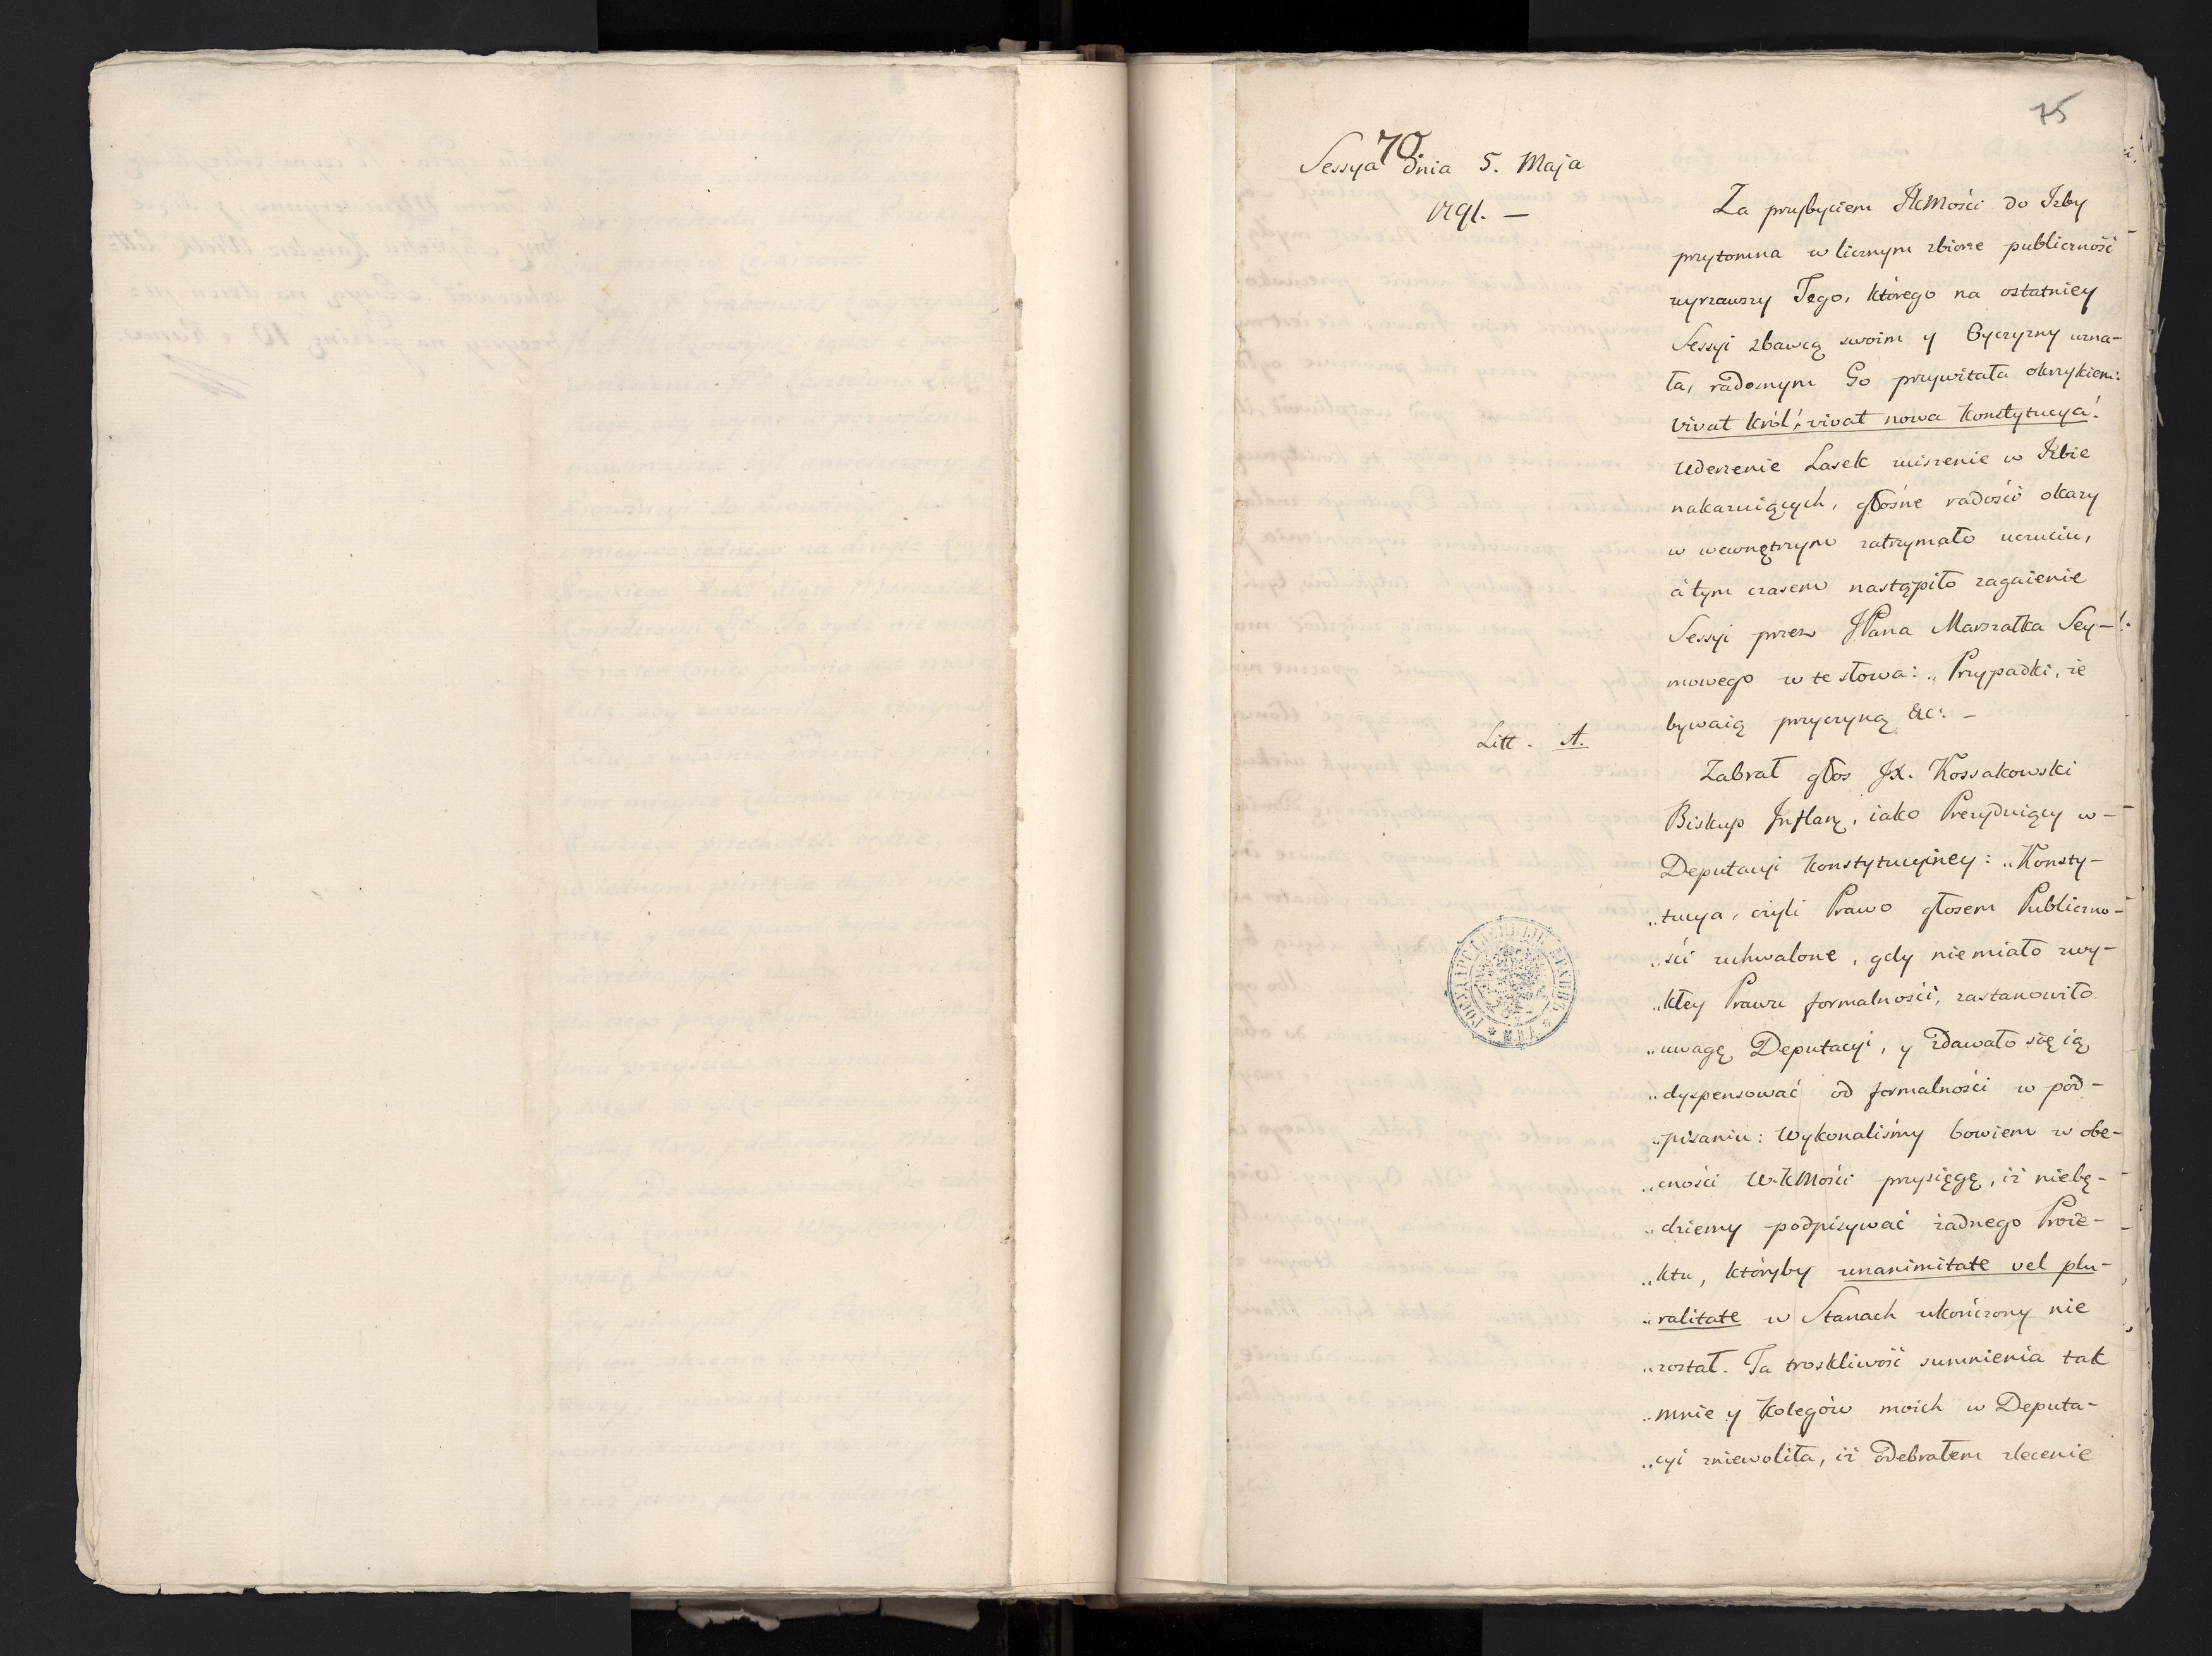 75
Sessya 70. dnia 5. Maja
1791. —
Za przybyciem JKMości do Izby
przytomna w licznym zbiorze publiczność
uyrzawszy Tego, którego na ostatniey
Sessyi zbawcą swoim y Oyczyzny uzna-
ła, radosnym Go przywitała okrzykiem:
vivat król! vivat nowa konstytucya!
Uderzenie Lasek uciszenie w Izbie
nakazuiących, głośne radości okazy
w wewnętrznym zatrzymało uczuciu,
a tym czasem nastąpiło zagaienie
Sessyi przez JPana Marszałka Sey-
mowego w te słowa: „Przypadki, że
bywaią przyczyną &c: -
Litt. A.
Zabrał głos JX. Kossakowski
Biskup Inflan:, iako Prezyduiący w-
Deputacyi konstytucyiney: „Konsty-
„tucya, czyli Prawo głosem Publiczno-
„ści uchwalone, gdy nie miało zwy-
„kłey Prawu formalności, zastanowiło
„uwagę Deputacyi, y zdawało się ią
„dyspensować od formalności w pod-
„pisaniu: Wykonaliśmy bowiem w obe-
„cności W.KMości przysięgę, iż niebę-
„dziemy podpisywać żadnego Proie-
„ktu, któryby unanimitate vel plu-
„ralitate w Stanach ukończony nie
„został. Ta troskliwość sumnienia tak
„mnie y Kolegów moich w Deputa-
„cyi zniewoliła, iż odebrałem zlecenie